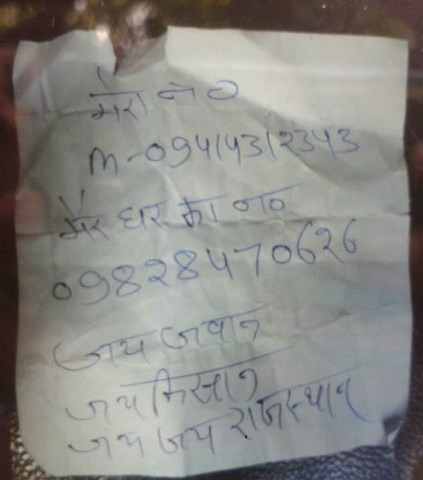 मेरा नं०
m-09414312343
मेरे घर का नं०
09828470626
जय जवान
जय किसान
जय जय राजस्थान